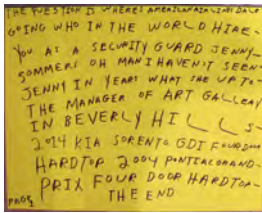 THE QUESTION IS WHERES AMERICAN AIRLINES DALE
GOING WHO IN THE WORLD HIRE-
YOU AS A SECURITY GUARD JENNY-
SOMMERS OH MAN I HAVEN'T SEEN-
JENNY IN YEARS WHAT SHE UP TO-
THE MANAGER OF ART GALLERY
IN BEVERLY HILLS-
2014 KIA SORENTO GDI FOUR DOOR
HARDTOP 2004 PONTIAC GRAND-
PRIX FOUR DOOR HARDTOP-
THE END